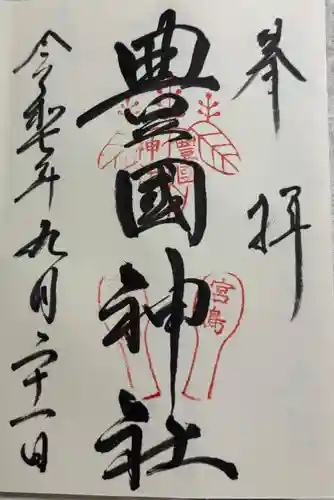 奉拝
豊國神社
豊國神
宮島
令和七年九月二十一日